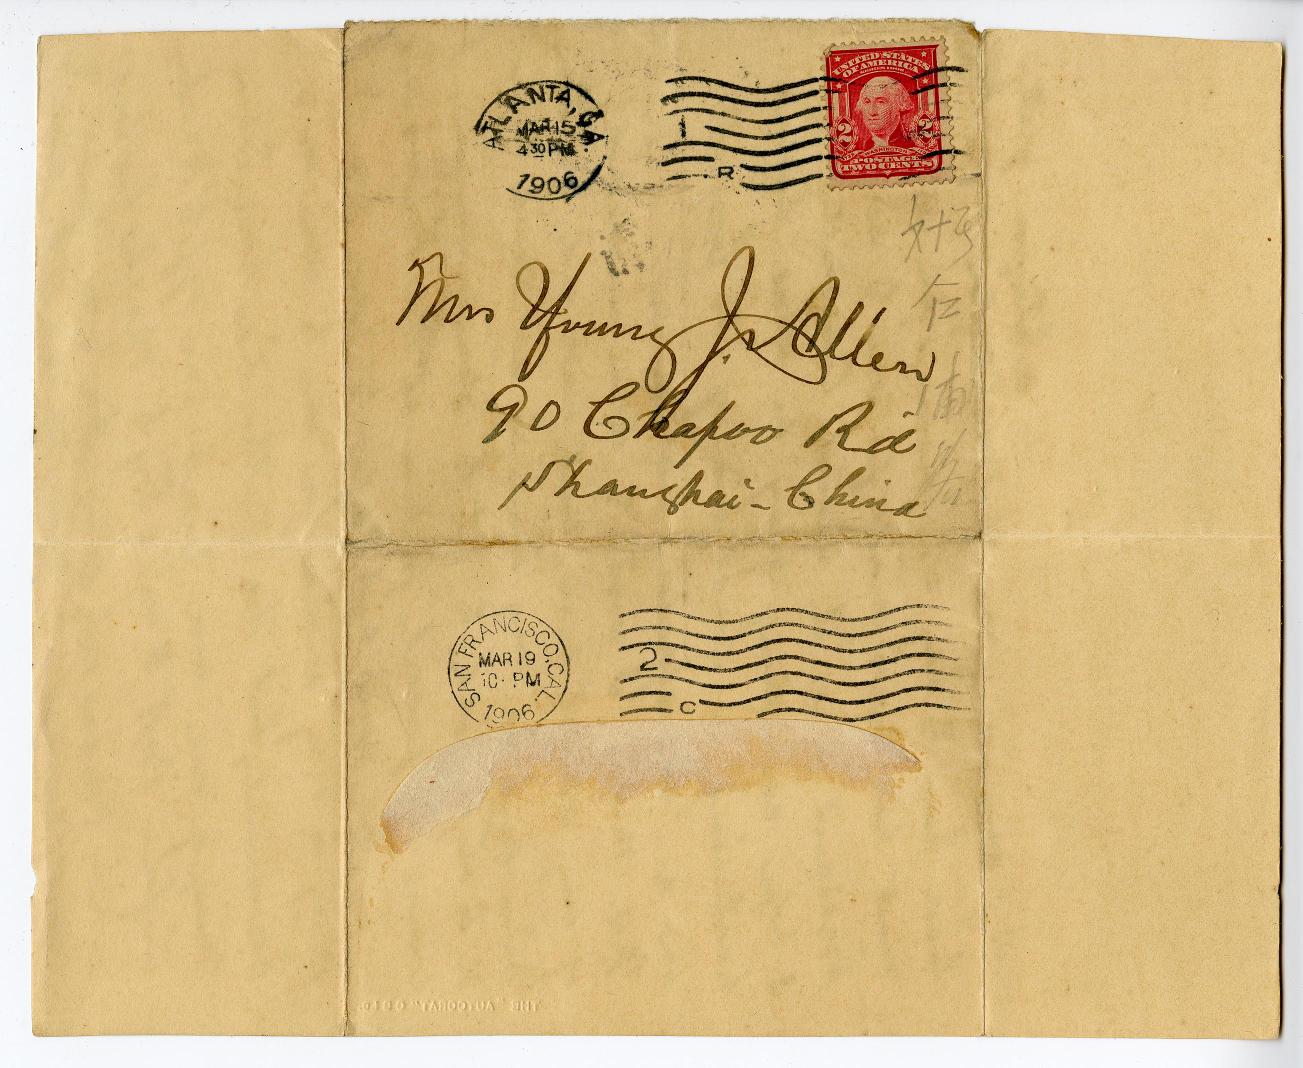 ATLANTA, GA.
MAR 15
4 30 PM
1906
1
R
UNITED STATES
OF AMERICA
2 2
WASHINGTON
POSTAGE
TWO CENTS
Mrs Young J. Allen
90 Chapoo Rd
Shanghai - China
SAN FRANCISCO, CAL.
MAR 19
10 - PM
1906
2
C